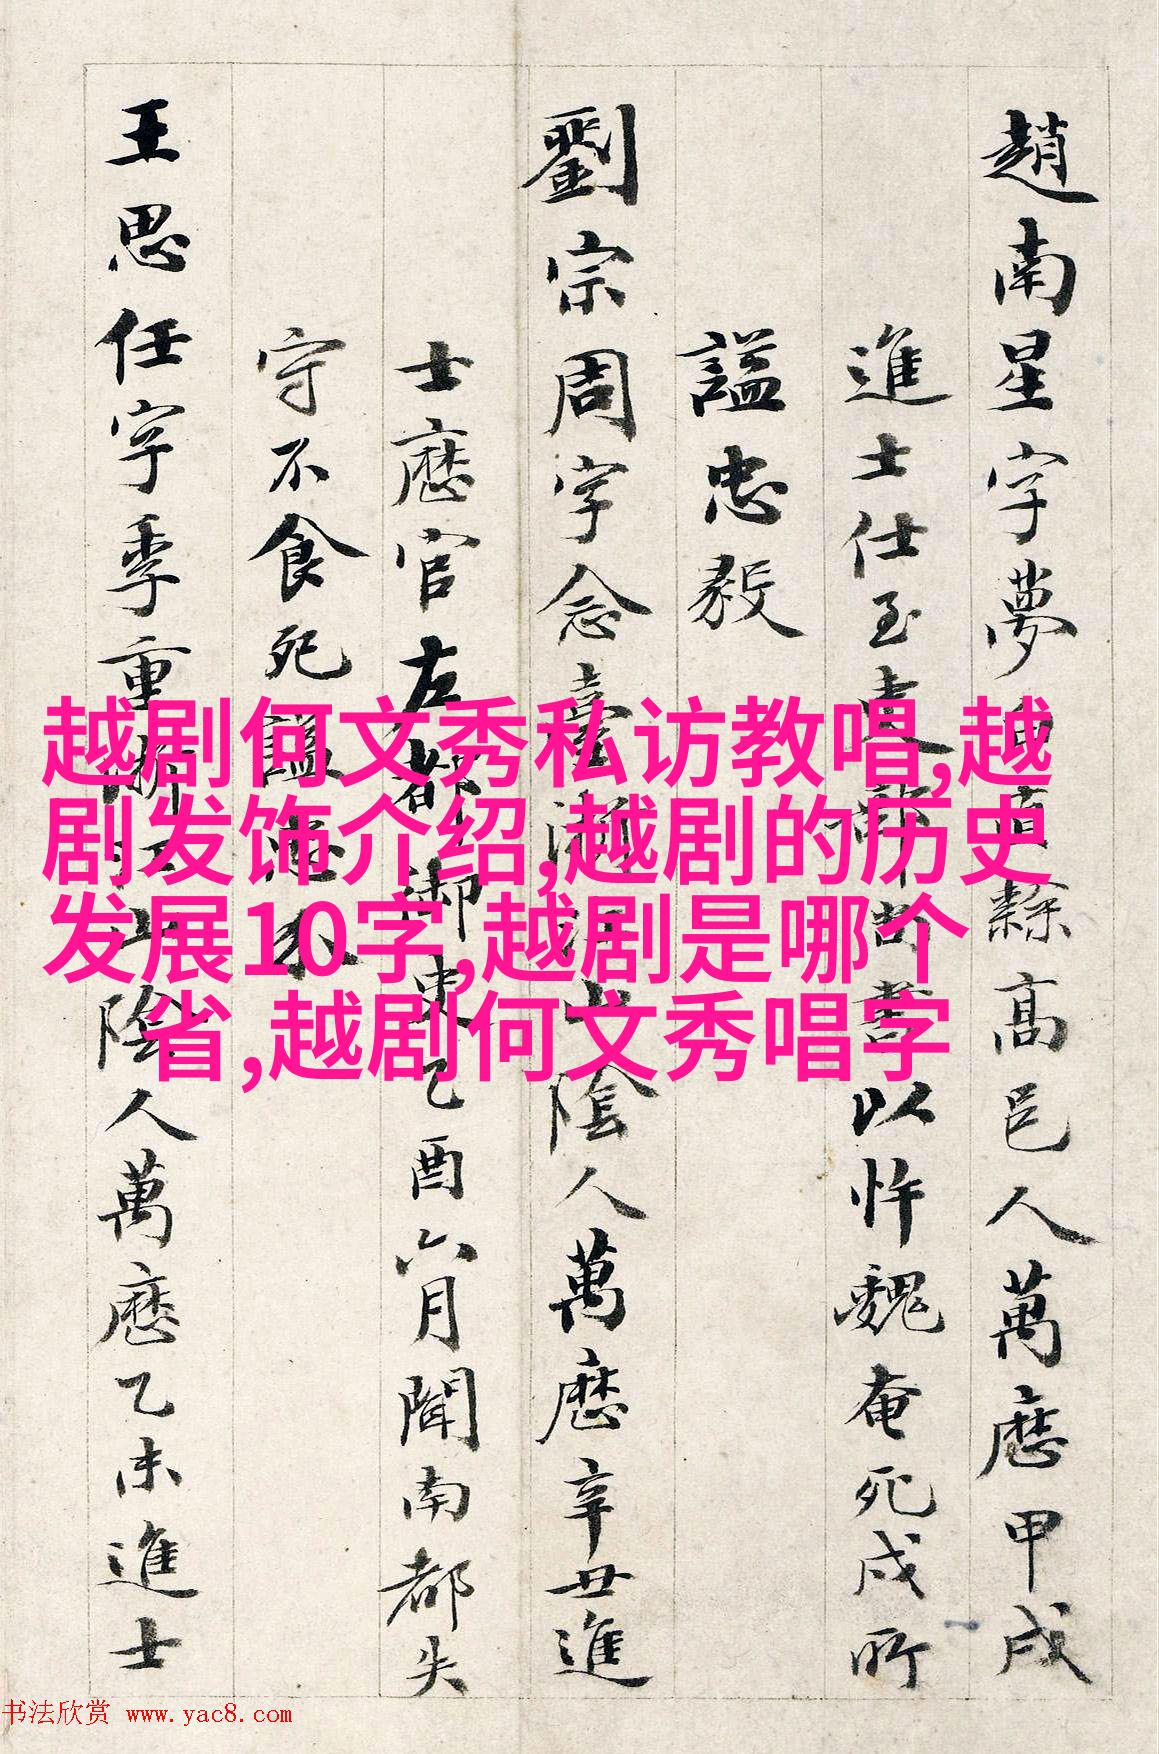 趙南星字夢白直隸高邑人萬曆甲戌
進士仕至吏部尚書以忤魏奄死戍所
謚忠毅
劉宗周字念臺浙江山陰人萬曆辛丑進
士歷官左都御史乙酉六月聞南都失
守不食死謚忠
王思任字季重浙江山陰人萬曆乙未進士
越剧何文秀私访教唱,越
剧发饰介绍,越剧的历史
发展10字,越剧是哪个
省,越剧何文秀唱字
书法欣赏 www.yac8.com